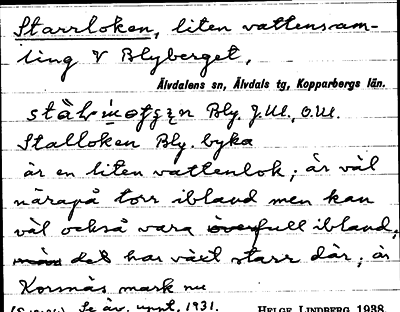 Starrloken, liten vattensam-
ling V Blyberget,
Älvdalens sn, Älvdals tg, Kopparbergs län.
Bly. J.M., O.M.
Stalloken Bly. byka
är en liten vattenlok; är väl
närapå torr ibland men kan
väl också vara full ibland;
det har växt starr där; är
Korsnäs mark nu
Se äv. uppt. 1931. HELGE LINDBERG 1938.